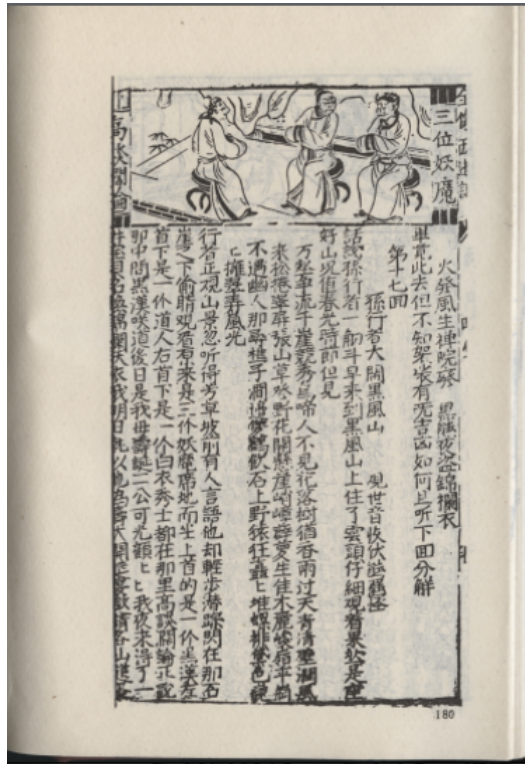 三位妖魔
高談闊論
火發風生禪院廢 黑熊夜盜錦襴衣
畢竟此去但不知袈裟有无吉凶如何且听下面分解
第十七回
孫行者大鬧黑風山 觀世音收伏熊羆怪
話說孫行者一觔斗早來到黑風山上住了雲頭仔細觀看果然是座
好山況値春光時節但見
万壑爭流千崖競秀鳥啼人不見花落樹猶香雨过天青清壁潤風
來松捲翠屏張山草發野花開懸崖峭嶂薜蘿生佳木麗峻嶺平崗
不遇幽人那尋樵子澗邊雙鶴飲石上野猿狂矗匕堆螺排黛色巍
匕擁翠弄風光
行者正視山景忽听得芳草坡前有人言語他却輕步潛蹤閃在那石
崖之下偷睛觀看原來是三个妖魔席地而坐上首的是一个黑漢左
首下是一个道人右首下是一个白衣秀士都在那里高談闊論正說
那中間黑漢笑道後日是我母壽誕二公可光顧匕匕我夜來得了一
180